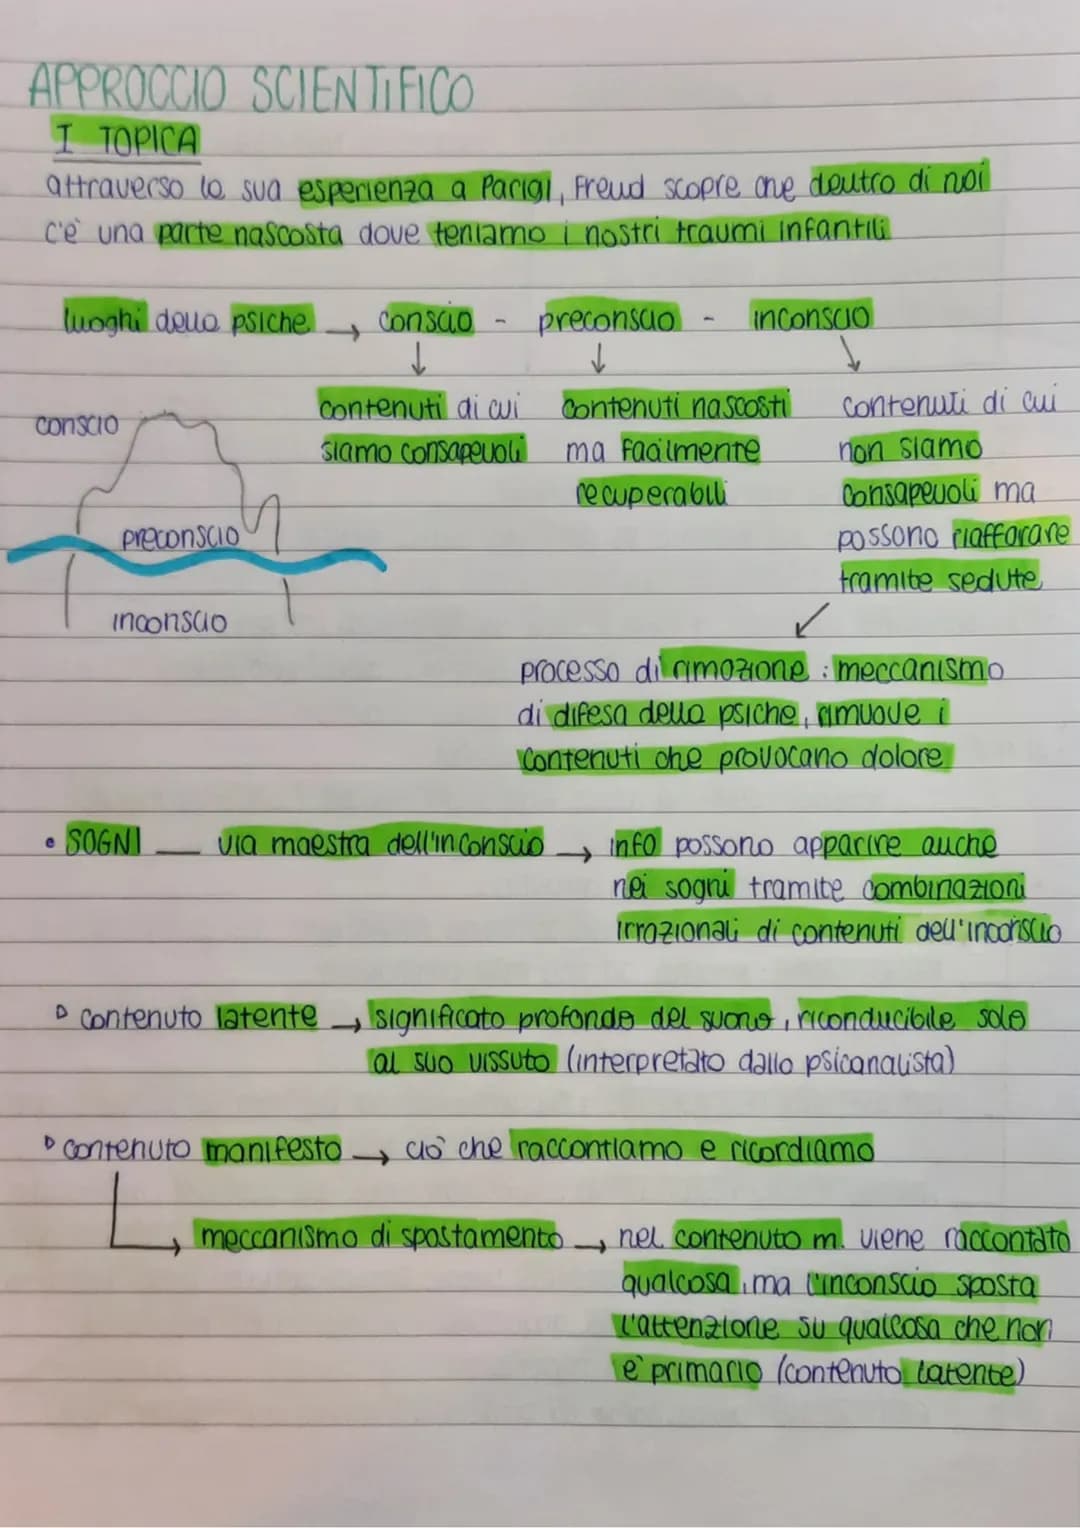 APPROCCIO SCIENTIFICO
I TOPICA
attraverso la sua esperienza a Parigi, Freud scopre che dentro di noi
c'è una parte nascosta dove teniamo i nostri traumi infantili
luoghi della psiche → conscio - preconscio - inconscio
contenuti di cui
siamo consapevoli
contenuti nascosti
ma facilmente
recuperabili
contenuti di cui
non siamo
consapevoli ma
possono riafforare
tramite sedute
conscio
preconscio
inconscio
processo di rimozione : meccanismo
di difesa della psiche, rimuove i
contenuti che provocano dolore
• SOGNI — via maestra dell'inconscio → info possono apparire anche
nei sogni tramite combinazioni
irrazionali di contenuti dell'inconscio
▷ contenuto latente → significato profondo del suono, riconducibile solo
al suo vissuto (interpretato dallo psicanalista)
▷ contenuto manifesto → ciò che raccontiamo e ricordiamo
→ meccanismo di spostamento → nel contenuto m. viene raccontato
qualcosa, ma l'inconscio sposta
l'attenzione su qualcosa che non
è primario (contenuto latente)